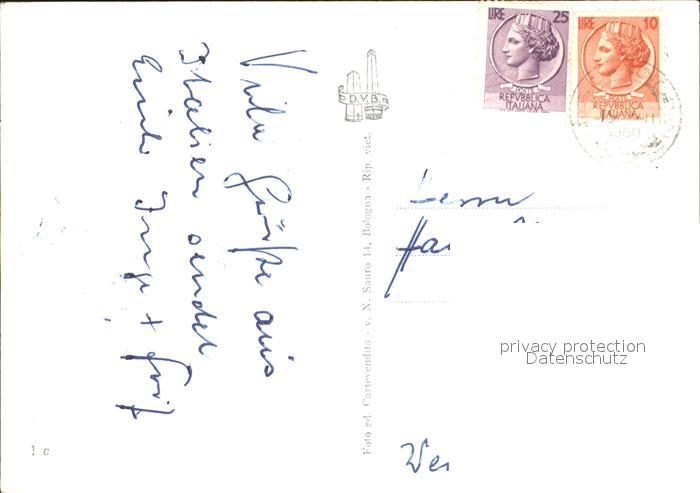 Viele Grüße aus
Italien sendet
Inge + 
D.V.B.
Foto ed. Cartovendita - v. N. Sauro 14, Bologna - Rip. viet.
LIRE 25
REPVBBLICA
ITALIANA
LIRE 10
REPVBBLICA
ITALIANA
Herrn
Ha
privacy protection
Datenschutz
Wei
1 c